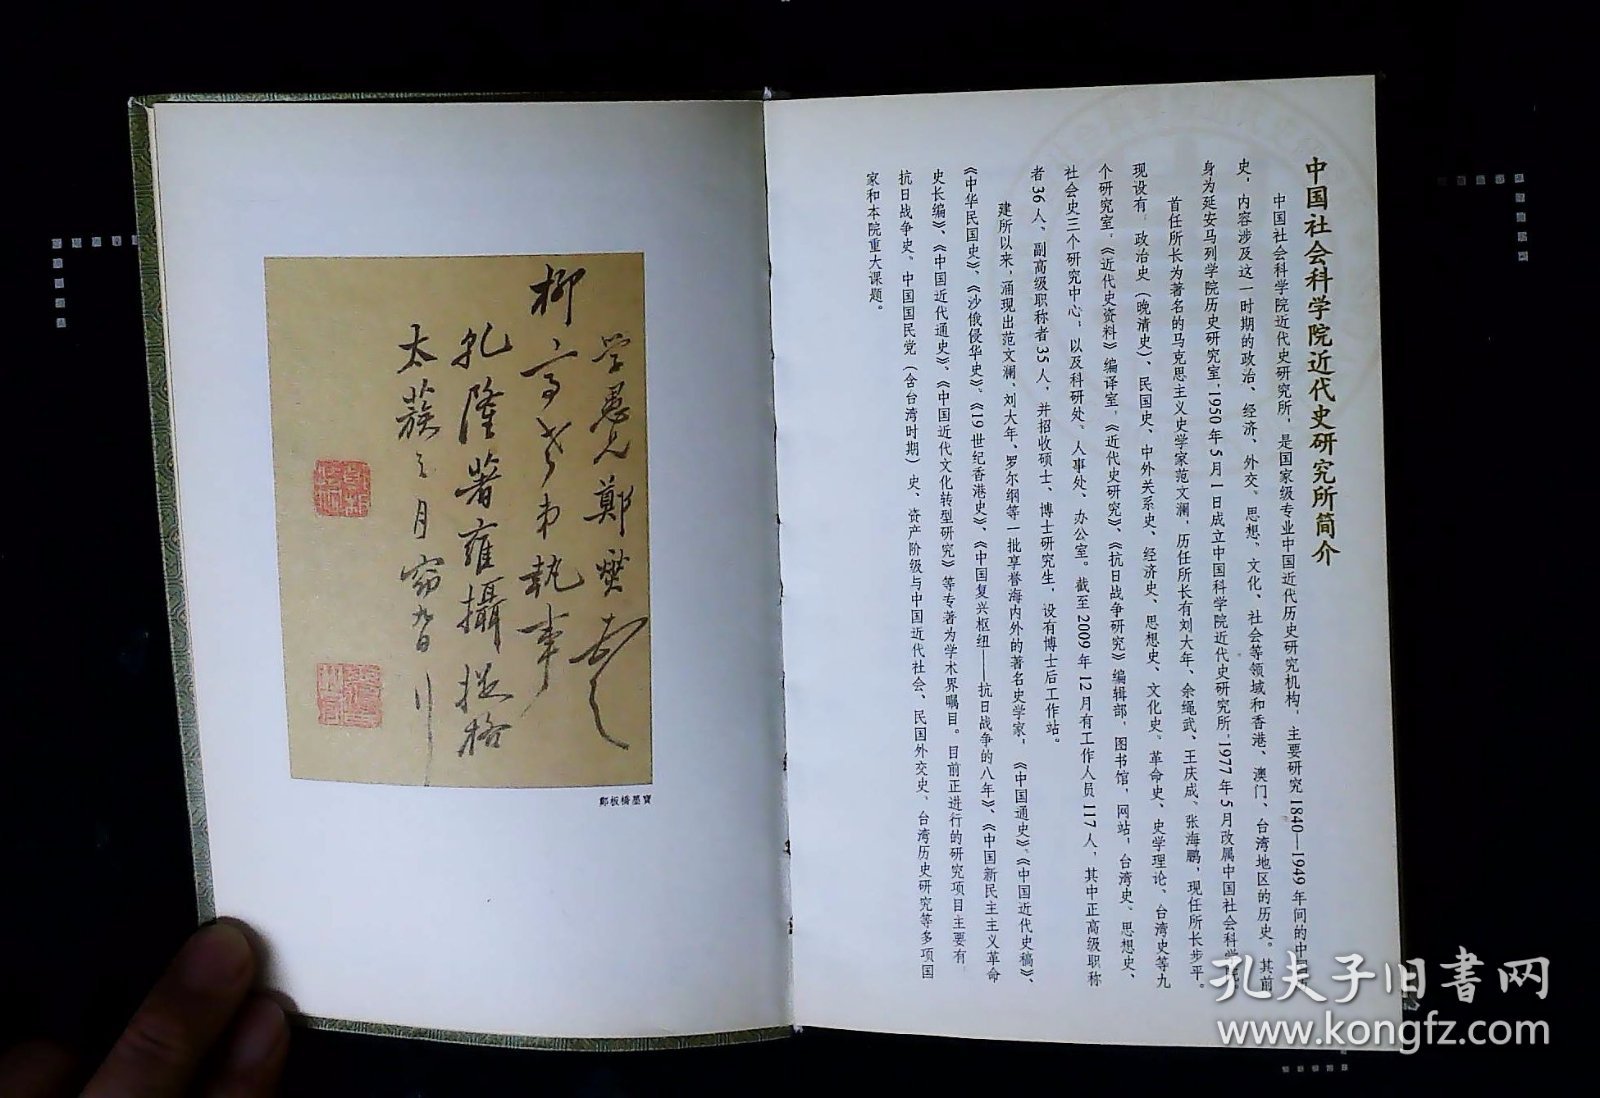 中国社会科学院近代史研究所简介
中国社会科学院近代史研究所，是国家级专业中国近代历史研究机构，主要研究1840—1949年间的中国历
史，内容涉及这一时期的政治、经济、外交、思想、文化、社会等领域和香港、澳门、台湾地区的历史。其前
身为延安马列学院历史研究室，1950年5月1日成立中国科学院近代史研究所，1977年5月改属中国社会科学院。
首任所长为著名的马克思主义史学家范文澜，历任所长有刘大年、余绳武、王庆成、张海鹏，现任所长步平。
现设有：政治史（晚清史）、民国史、中外关系史、经济史、思想史、文化史、革命史、史学理论、台湾史等九
个研究室，《近代史资料》编译室，《近代史研究》、《抗日战争研究》编辑部，图书馆，网站，台湾史、思想史、
社会史三个研究中心，以及科研处、人事处、办公室。截至2009年12月有工作人员117人，其中正高级职称
者36人、副高级职称者35人，并招收硕士、博士研究生，设有博士后工作站。
建所以来，涌现出范文澜、刘大年、罗尔纲等一批享誉海内外的著名史学家，《中国通史》、《中国近代史稿》、
《中华民国史》、《沙俄侵华史》、《19世纪香港史》、《中国复兴枢纽——抗日战争的八年》、《中国新民主主义革命
史长编》、《中国近代通史》、《中国近代文化转型研究》等专著为学术界瞩目。目前正进行的研究项目主要有
抗日战争史、中国国民党（含台湾时期）史、资产阶级与中国近代社会、民国外交史、台湾历史研究等多项国
家和本院重大课题。
学愚兄鄭燮
柳亭老弟執事
乾隆著雍攝提格
太蔟之月
鄭板橋墨寶
孔夫子旧书网
www.kongfz.com